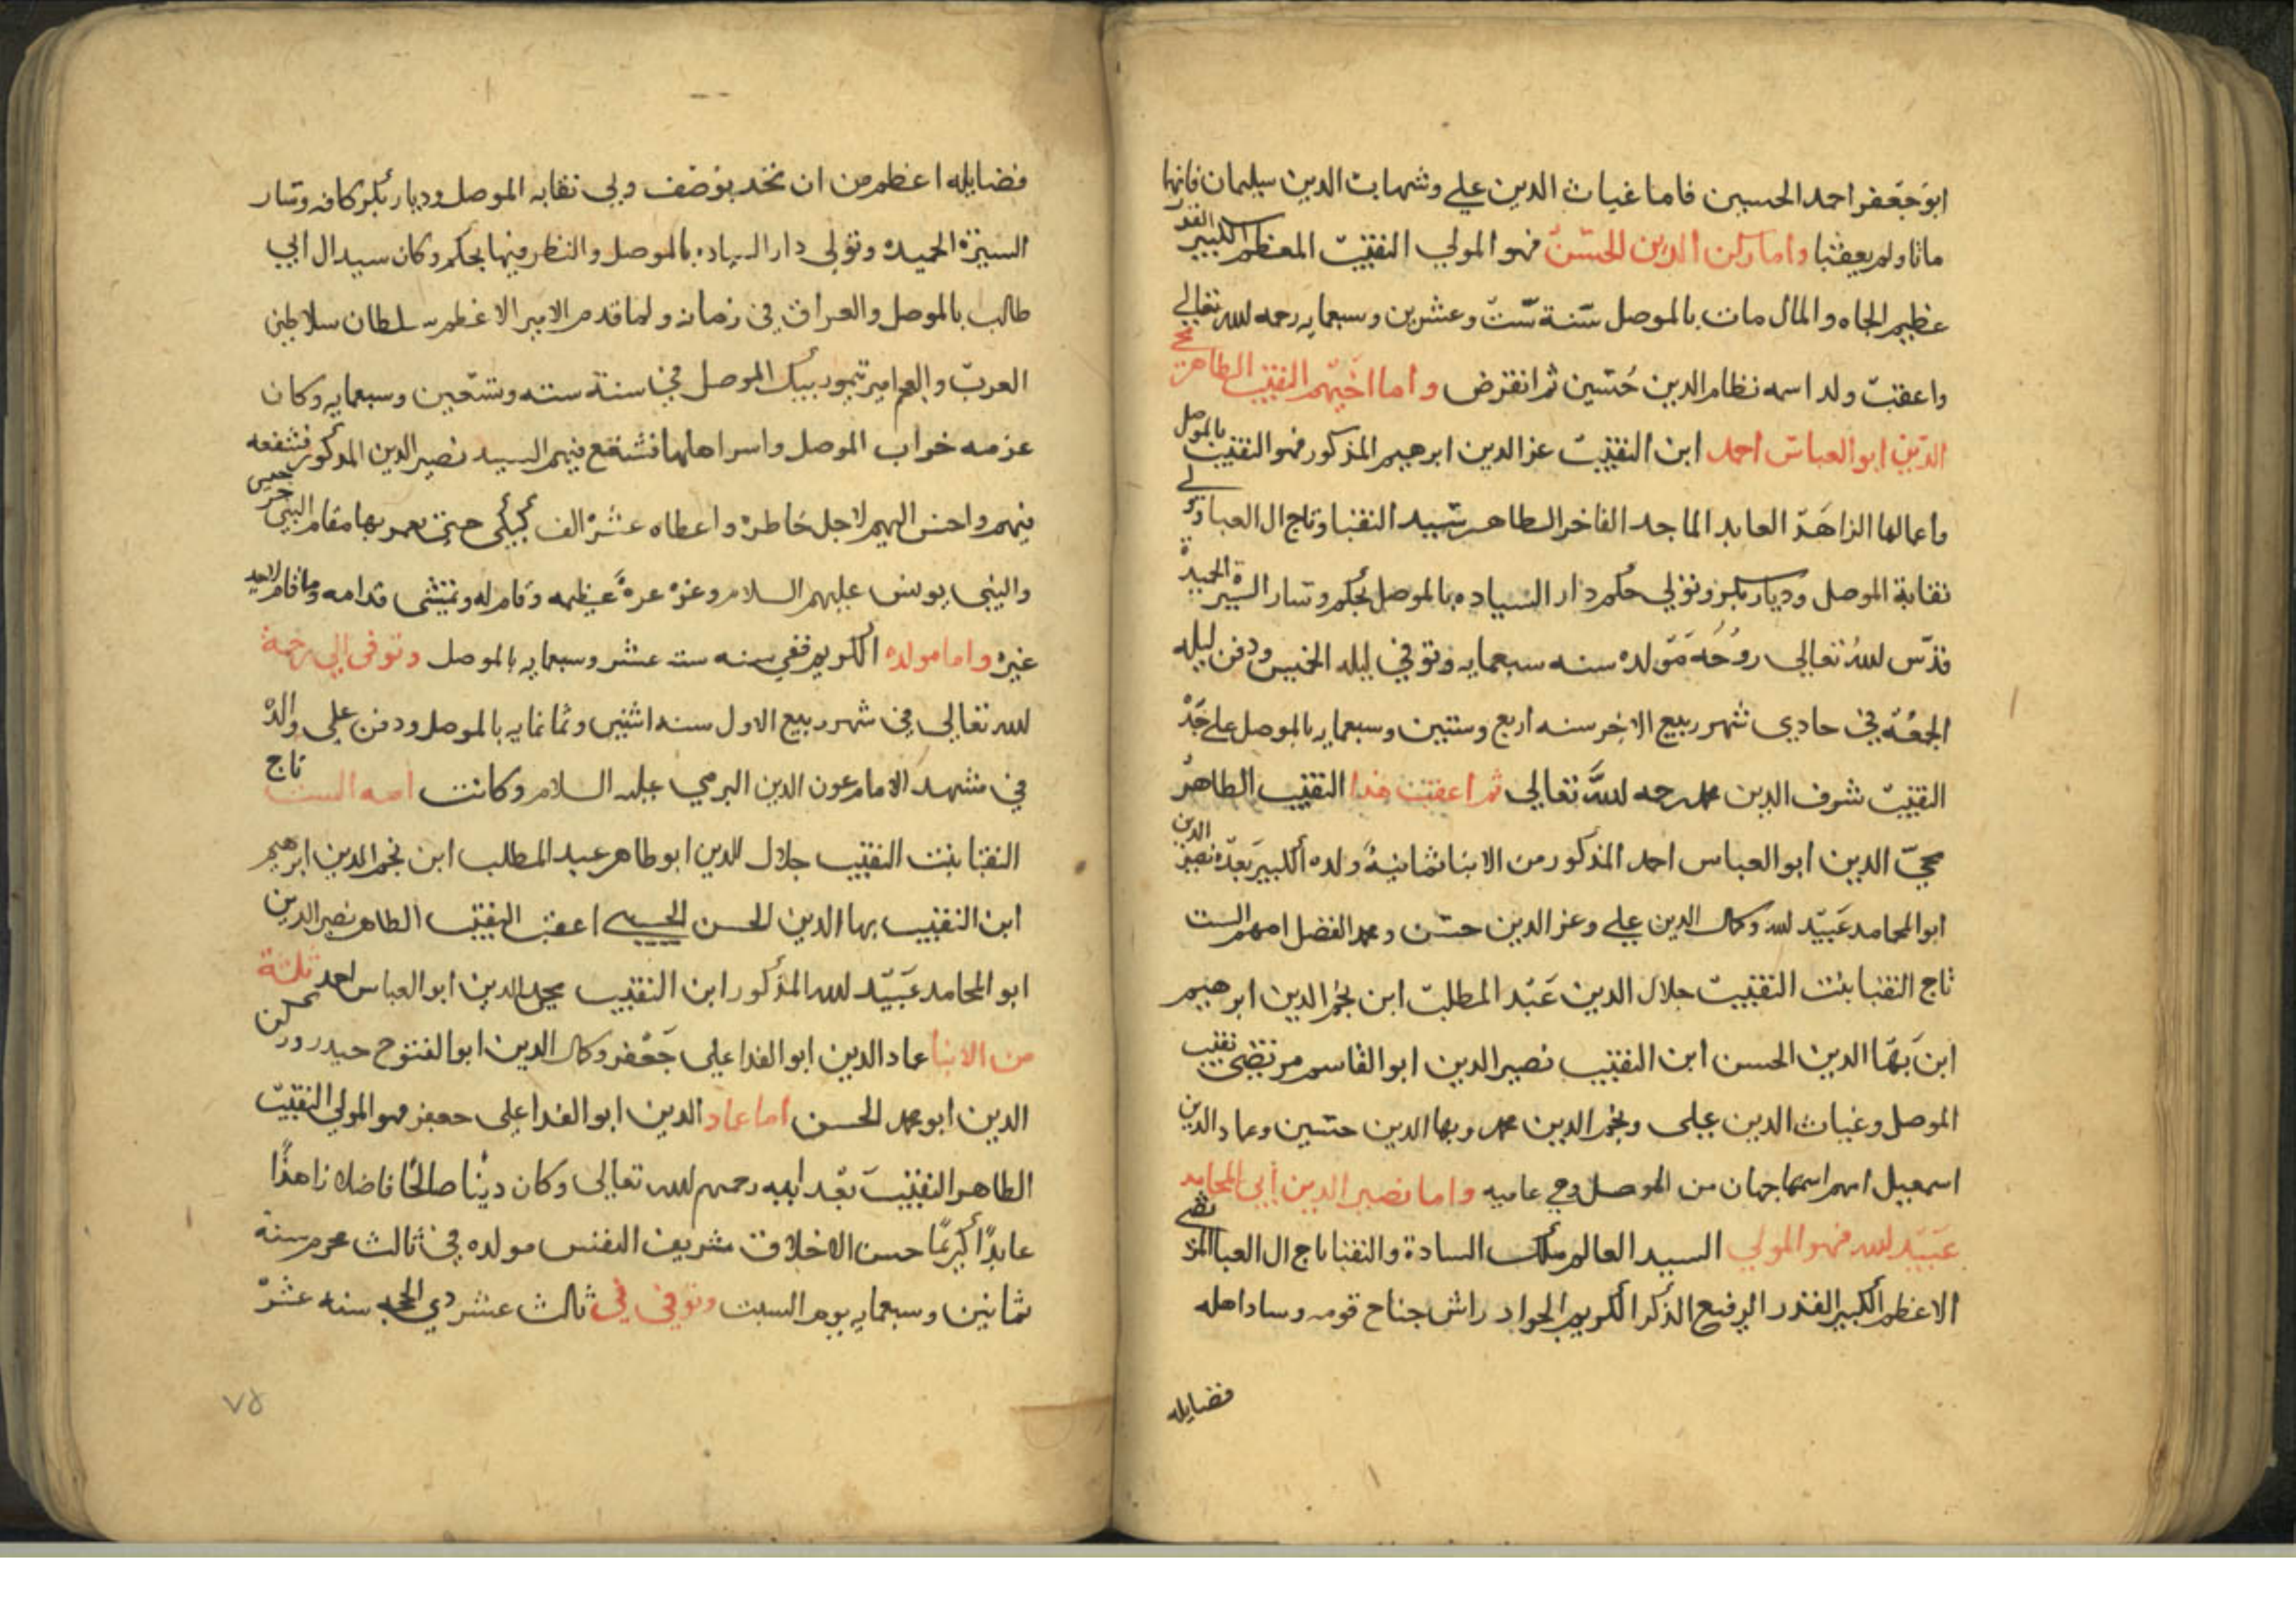 ابو جعفر احمد الحسين فاما غياث الدين علي وشهاب الدين سليمان فانهما
ماتا ولم يعقبا واما ركن الدين الحسن فهو المولي النقيب المعظم الكبير القدر
عظيم الجاه والمال مات بالموصل سنة ست وعشرين وسبعمايه رحمه الله تعالي
واعقب ولد اسمه نظام الدين حسين ثم انقرض واما اخيهم النقيب الطاهر محي
الدين ابو العباس احمد ابن النقيب عز الدين ابرهيم المذكور فهو النقيب بالموصل
واعمالها الزاهد العابد الماجد الفاخر الطاهر سيد النقبا وتاج ال العبا ولي
نقابة الموصل وديار بكر وتولي حكم دار السياده بالموصل بحكم وسار السيرة الحميدة
قدس الله تعالي روحه مولده سنه سبعمايه وتوفي ليله الخميس ودفن ليله
الجمعة في حادي شهر ربيع الاخر سنه اربع وستين وسبعمايه بالموصل علي جده
النقيب شرف الدين محمد رحمه الله تعالي ثم اعقب هذا النقيب الطاهر
محي الدين ابو العباس احمد المذكور من الابنا ثمانية ولده الكبير بعده نصير الدين
ابو المحامد عبيد الله وكمال الدين علي وعز الدين حسن ومحمد الفضل امهم الست
تاج النقبا بنت النقيب جلال الدين عبد المطلب ابن نجم الدين ابرهيم
ابن بها الدين الحسن ابن النقيب نصير الدين ابو القاسم مرتضي نقيب
الموصل وغياث الدين علي ونجم الدين محمد وبها الدين حسين وعماد الدين
اسمعيل امهم اسمها جهان من الموصل وهي عاميه واما نصير الدين ابي المحامد
عبيد الله فهو المولي السيد العالم ملك السادة والنقبا تاج ال العبا المرتضي
الاعظم الكبير القدر الرفيع الذكر الكريم الجواد راش جناح قومه وساد اهله
فضايله
فضايله اعظم من ان تحد بوصف ولي نقابه الموصل وديار بكر كافه وسار
السيرة الحميده وتولي دار السياده بالموصل والنظر فيها بحكم وكان سيد ال ابي
طالب بالموصل والعراق في زمانه ولما قدم الامير الاعظم سلطان سلاطين
العرب والعجم امير تيمور بيك الموصل في سنة سته وتسعين وسبعمايه وكان
عزمه خراب الموصل واسر اهلها فشفع فيهم السيد نصير الدين المذكور فشفعه
فيهم واحسن اليهم لاجل خاطره واعطاه عشره الف كبيكي حتي يعمر بها مقام النبي جرجيس
والنبي يونس عليهم السلام وعزه عزة عظيمه وقام له وتمشي قدامه وما قام لاحد
غيره واما مولده الكريم ففي سنه ست عشر وسبعمايه بالموصل وتوفي الي رحمة
الله تعالي في شهر ربيع الاول سنه اثنين وثمانمايه بالموصل ودفن علي والده
في مشهد الامام عون الدين البرمي عليه السلام وكانت امه الست تاج
النقبا بنت النقيب جلال الدين ابو طاهر عبد المطلب ابن نجم الدين ابرهيم
ابن النقيب بها الدين الحسن الحسيني اعقب النقيب الطاهر نصير الدين
ابو المحامد عبيد الله المذكور ابن النقيب محي الدين ابو العباس احمد ثلثة
من الابنا عماد الدين ابو الفدا علي جعفر وكمال الدين ابو الفتوح حيدر وركن
الدين ابو محمد الحسن اما عماد الدين ابو الفدا علي جعفر فهو المولي النقيب
الطاهر النقيب بعد ابيه رحمهم الله تعالي وكان دينا صالحا فاضلا زاهدا
عابدا كريما حسن الاخلاق شريف النفس مولده في ثالث محرم سنة
ثمانين وسبعمايه يوم السبت وتوفي في ثالث عشر ذي الحجه سنه عشر
٧٥